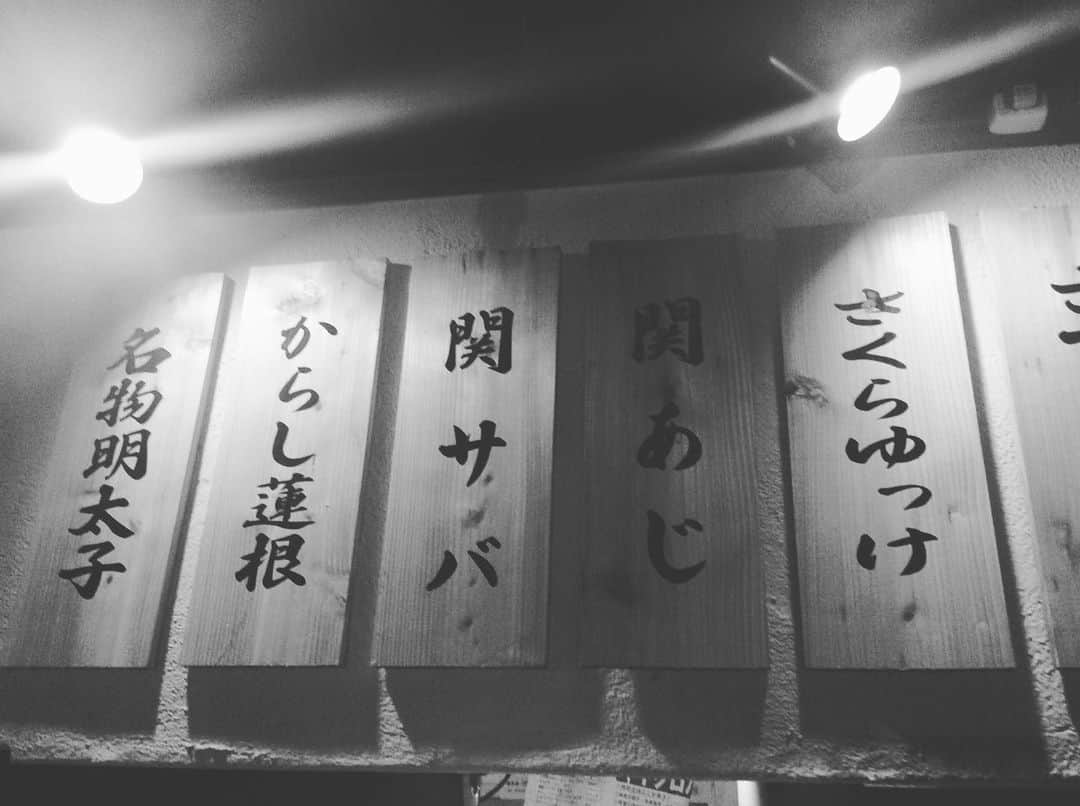 さくらゆっけ
関あじ
関サバ
からし蓮根
名物明太子